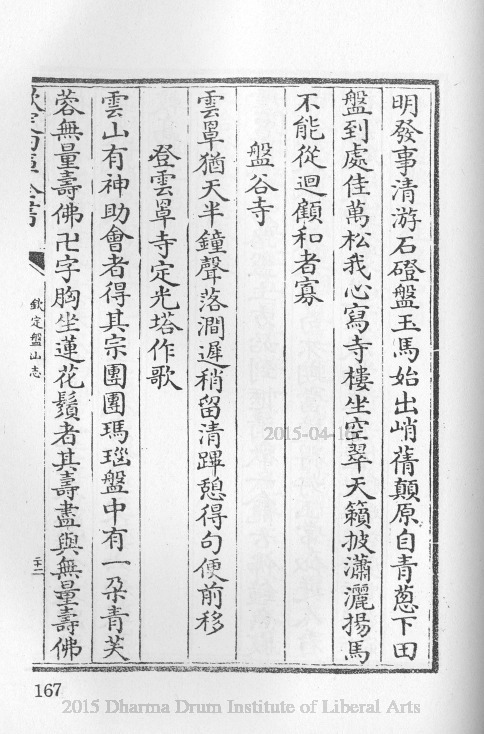 明發事清游石磴盤玉馬始出峭蒨顛原自青蔥下田
盤到處佳萬松我心寫寺樓坐空翠天籟披瀟灑揚馬
不能從迴顧和者寡
盤谷寺
雲罩猶天半鐘聲落澗遲稍留清蹕憩得句便前移
登雲罩寺定光塔作歌
雲山有神助會者得其宗團團瑪瑙盤中有一朵青芙
蓉無量壽佛卍字胸坐蓮花鬚者其壽盡與無量壽佛
欽定四庫全書
欽定盤山志
二十二
167
2015-04-16
2015 Dharma Drum Institute of Liberal Arts